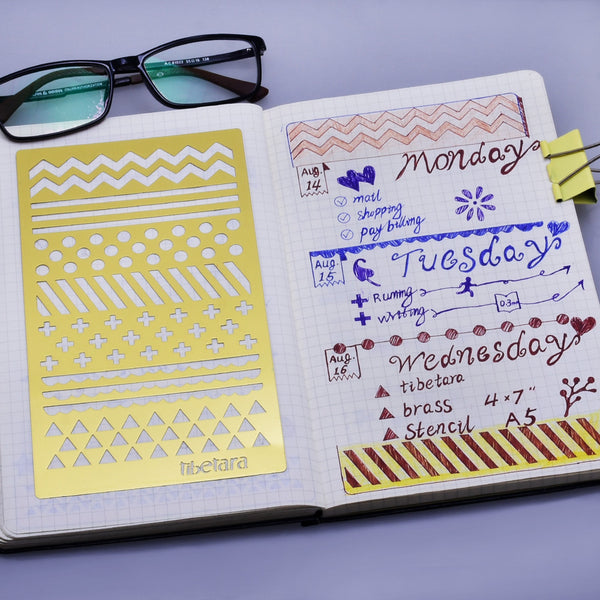 tibetara
Monday
Aug.
14
mail
shopping
pay billing
Tuesday
Aug.
15
Running
Writing
Wednesday
Aug.
16
tibetara
brass 4×7"
Stencil A5